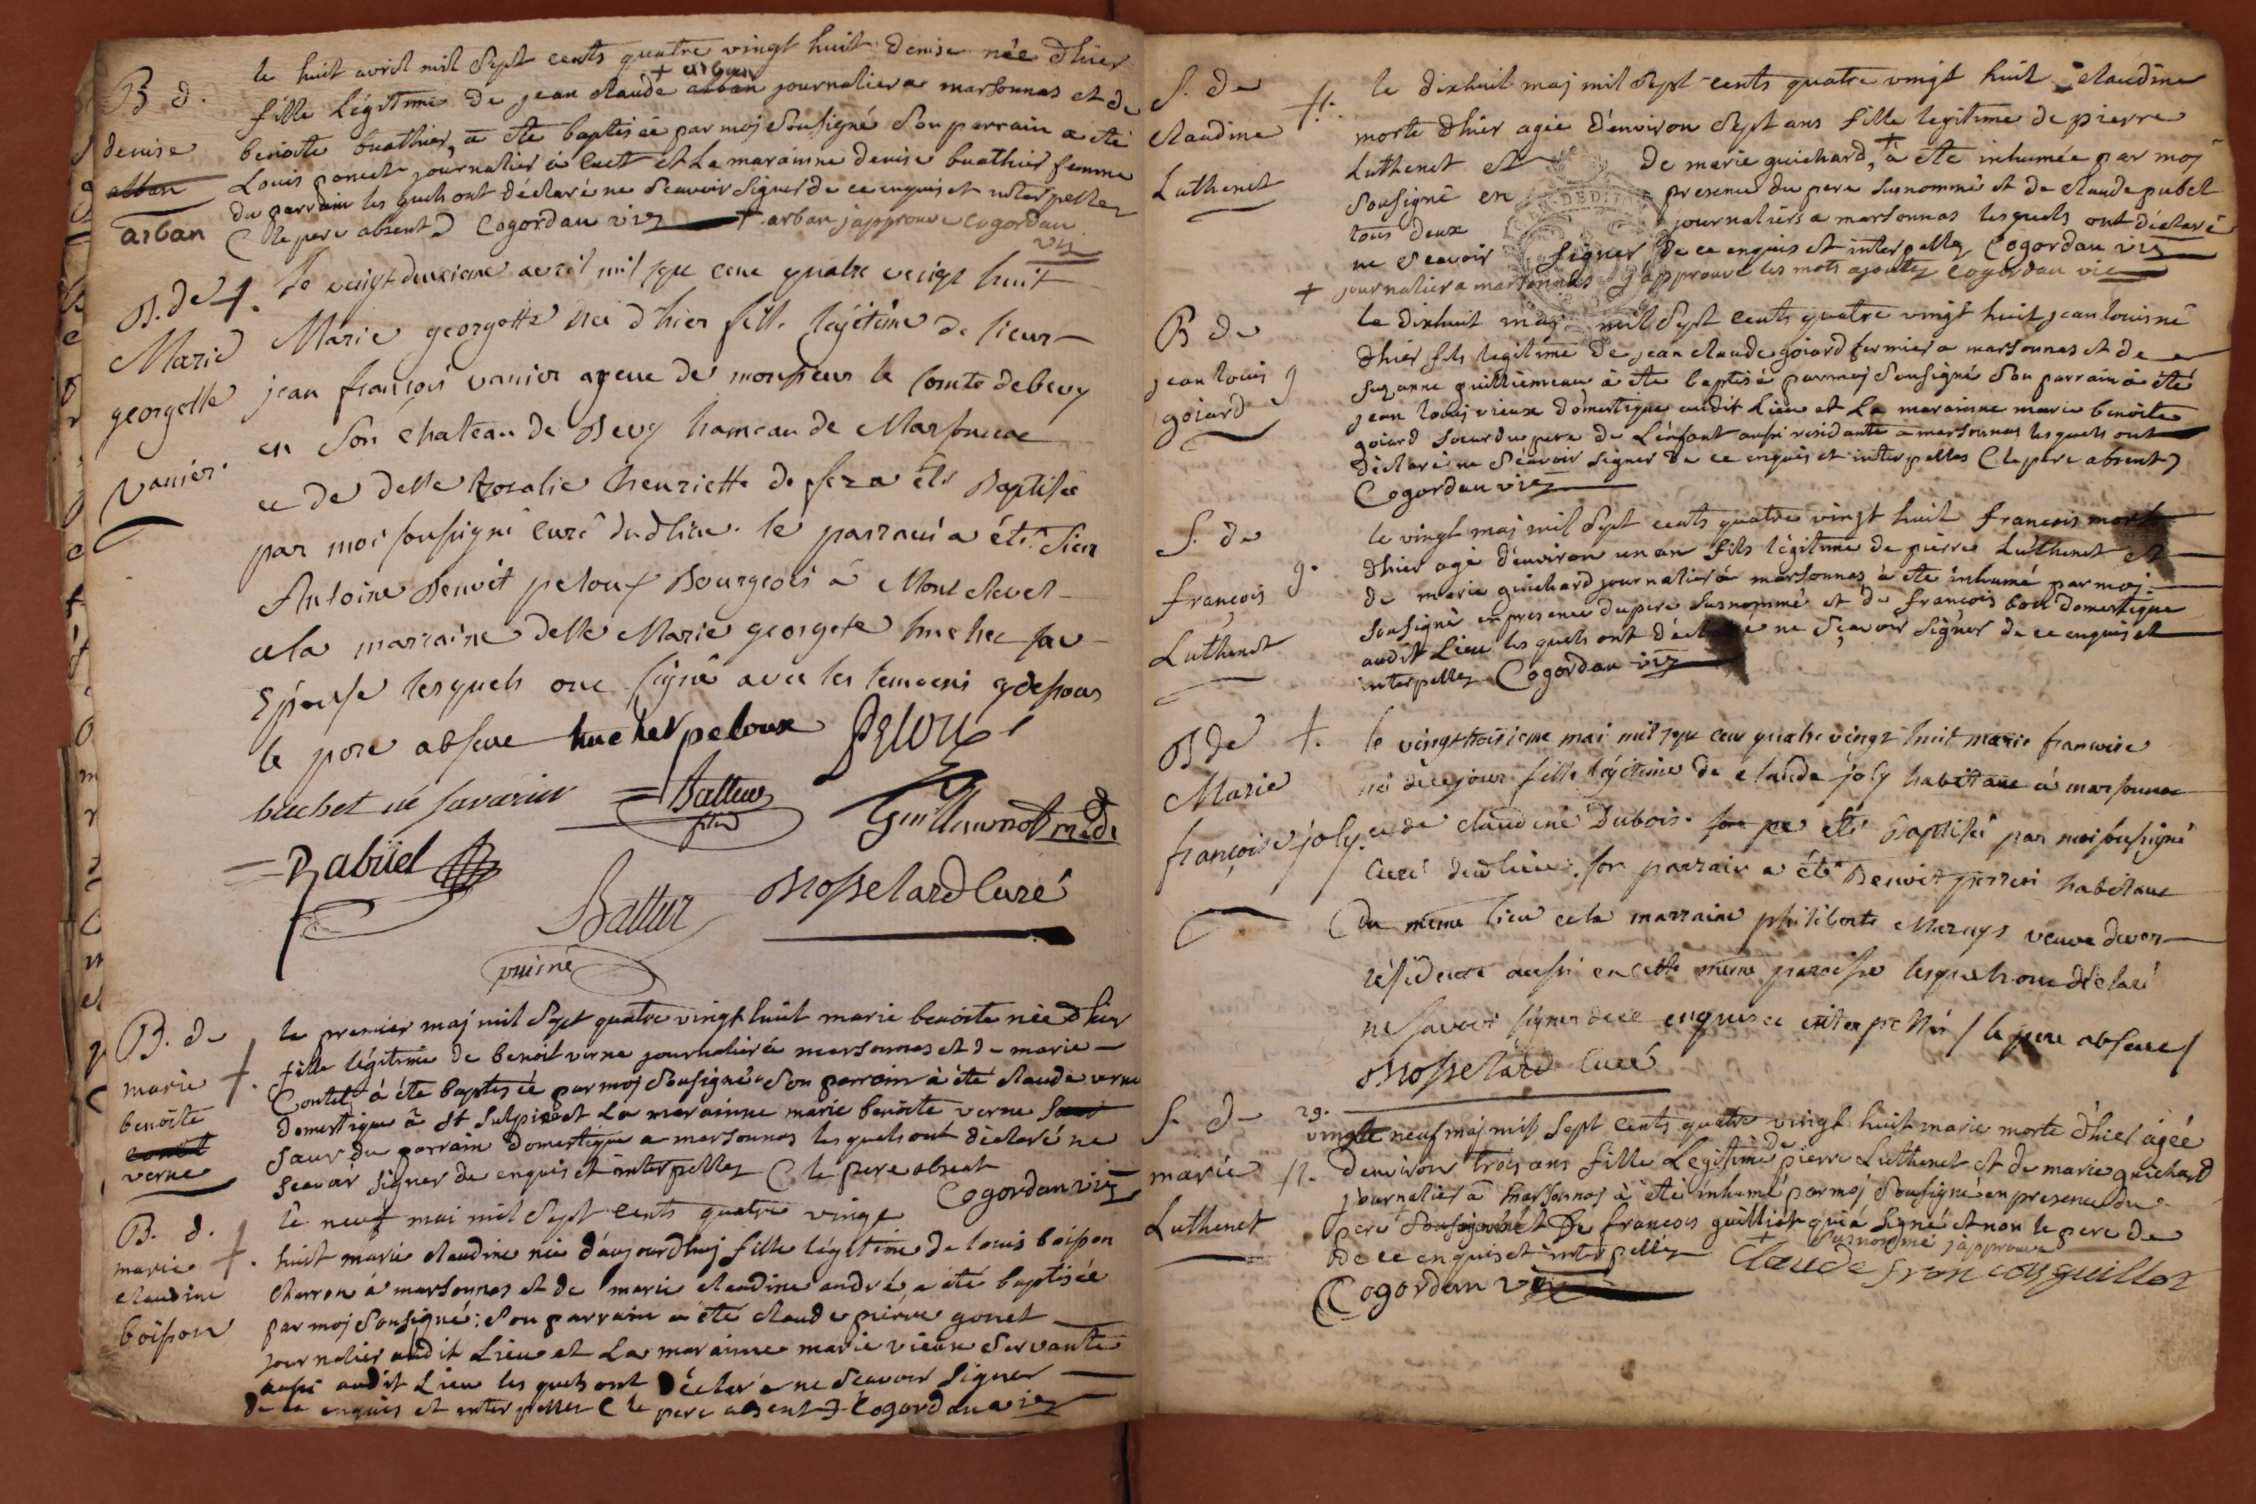 B d.
denise
alban
arban
le huit avril mil Sept cents quatre vingt huit denise née d'hier
+ arban
fille Légitime de jean claude alban journalier a marsonnas et de
benoite buathier, a été baptisée par moj Sousigné Son parrain a été
Louis poncet journalier à Cuet et La maraine denise buathier femme
du parrain les quels ont déclaré ne Scavoir Signer de ce enquis et interpellez
(le pere absent) Cogordan viz + arban j'approuve Cogordan
viz
B. de +.
Marie
georgette
vanier
Le vingt deuxieme avril mil sept cent quatre vingt huit
Marie georgette née d'hier fille légitime de sieur
jean françois vanier agent de monsieur le Comte debevy
en Son chateau de Bevy hameau de Marsonnas
et de delle Rosalie henriette de fez a été Baptisée
par moi soussigné curé dudlieu. le parrain a été Sieur
Antoine Benoit peloux Bourgeois à Montrevel
et la marraine delle Marie georgette huchet sa
Epouse lesquels ont signé avec les temoins cydessous
le pere absent huchet peloux Peloux
buchet né savarin Battur
fils Guillaumot md
Rabuel Battur Mosselard Curé
vuiné
B. de
marie +.
benoîte
contet
verne
le premier maj mil Sept quatre vingt huit marie benoite née d'hier
fille légitime de benoit verne journalier à marsonnas et de marie
Contet à été baptisée par moj Sousigné Son parrain à été claude verne
domestique à St Sulpice et La maraine marie benoite verne
Sœur du parrain domestique a marsonnas les quels ont déclaré ne
Scavoir Signer de enquis et interpellez (le pere absent
Cogordan viz
B. d.
marie +.
claudine
boisson
le neuf mai mil Sept cents quatre vingt
huit marie claudine née d'aujourdhuj fille légitime de louis boisson
charron à marsonnas et de marie claudine andré, a été baptisée
par moj Sousigné; Son parrain a été claude pierre gonet
journalier audit Lieu et La maraine marie vieux Servante
aussi audit Lieu les quels ont déclaré ne Scavoir Signer
de ce enquis et interpellez (le pere absent) Cogordan viz
S. de
claudine
Luthenet
le dixhuit maj mil Sept cents quatre vingt huit claudine
morte d'hier agée d'environ Sept ans fille legitime de pierre
Luthenet et de marie guichard, + à été inhumée par moj
Sousigné en presence du pere susnommé et de claude pubel
tous deux journaliers a marsonnas lesquels ont déclaré
ne Scavoir Signer de ce enquis et interpellez Cogordan viz
+ journalier a marsonnas j'approuve les mots ajoutez Cogordan viz
B de
jean louis
goiard
le dixhuit maj mil Sept cents quatre vingt huit jean louis né
d'hier fils legitime de jean claude goiard fermier a marsonnas et de
Suzanne guillemeau à été baptisé par moj Sousigné Son parrain à été
jean louis vieux domestique audit Lieu et La maraine marie benoite
goiard Sœur du pere de L'enfant aussi residante a marsonnas les quels ont
déclaré ne Scavoir Signer de ce enquis et interpellez (le pere absent)
Cogordan viz
S. de
françois
Luthenet
le vingt maj mil Sept cents quatre vingt huit françois mort
d'hier agé d'environ un an fils légitime de pierre Luthenet et
de marie guichard journalier à marsonnas à été inhumé par moj
Sousigné en presence du pere Susnommé et de françois bon domestique
audit Lieu les quels ont déclaré ne Scavoir Signer de ce enquis et
interpellez Cogordan viz
B de +.
Marie
françoise joly
le vingt troisieme mai mil sept cent quatre vingt huit marie francoise
née de ce jour fille légitime de claude joly habitant à marsonnas
et de claudine Dubois. été baptisée par moi soussigné
curé dudlieu. son parrain a été Benoit perrin habitant
du même lieu et la marraine philiberte
résidente aussi en cette même paroisse lesquels ont déclaré
ne savoir signer de ce enquis et interpellés / le pere absent /
Mosselard curé
S. de
marie
Luthenet
29.
vingt neuf maj mil Sept cents quatre vingt huit marie morte d'hier agée
d'environ trois ans fille Legitime de pierre Luthenet et de marie guichard
journalier à marsonnas à été inhumé par moj Sousigné en presence du
pere et De francois guilliot qui à Signé et non le pere de
de ce enquis et interpellez + Susnommé j'approuve
Cogordan viz Claude francois guillot